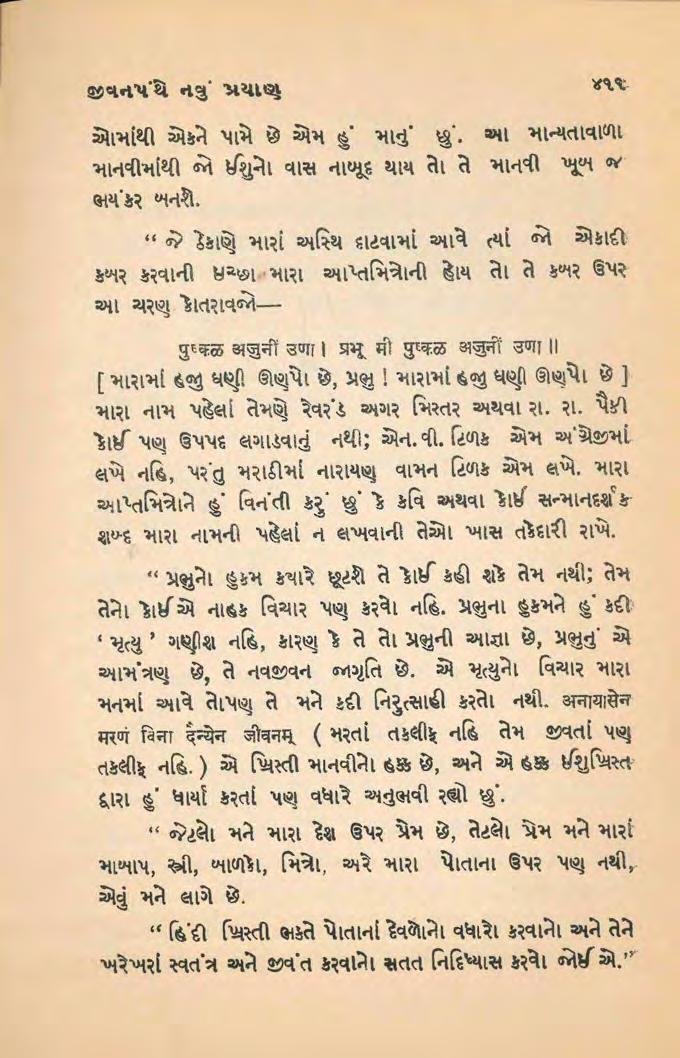 જીવનપંથે નવું પ્રયાણ ૪૧૧
ઓમાંથી એકને પામે છે એમ હું માનું છું. આ માન્યતાવાળા
માનવીમાંથી જો ઈશુનો વાસ નાબૂદ થાય તો તે માનવી ખૂબ જ
ભયંકર બનશે.
“ જે ઠેકાણે મારાં અસ્થિ દાટવામાં આવે ત્યાં જો એકાદી
કબર કરવાની ઇચ્છા મારા આપ્તમિત્રોની હોય તો તે કબર ઉપર
આ ચરણ કોતરાવજો—
पुष्कळ अजुनीं उणा । प्रभू मी पुष्कळ अजुनीं उणा ॥
[ મારામાં હજુ ઘણી ઊણપો છે, પ્રભુ ! મારામાં હજુ ઘણી ઊણપો છે ]
મારા નામ પહેલાં તેમણે રેવરંડ અગર મિસ્તર અથવા રા. રા. પૈકી
કોઈ પણ ઉપપદ લગાડવાનું નથી; એન. વી. ટિળક એમ અંગ્રેજીમાં
લખે નહિ, પરંતુ મરાઠીમાં નારાયણ વામન ટિળક એમ લખે. મારા
આપ્તમિત્રોને હું વિનંતી કરું છું કે કવિ અથવા કોઈ સન્માનદર્શક
શબ્દ મારા નામની પહેલાં ન લખવાની તેઓ ખાસ તકેદારી રાખે.
“ પ્રભુનો હુકમ ક્યારે છૂટશે તે કોઈ કહી શકે તેમ નથી; તેમ
તેનો કોઈએ નાહક વિચાર પણ કરવો નહિ. પ્રભુના હુકમને હું કદી
‘ મૃત્યુ ’ ગણીશ નહિ, કારણ કે તે તો પ્રભુની આજ્ઞા છે, પ્રભુનું એ
આમંત્રણ છે, તે નવજીવન જાગૃતિ છે. એ મૃત્યુનો વિચાર મારા
મનમાં આવે તોપણ તે મને કદી નિરુત્સાહી કરતો નથી. अनायासेन
मरणं विना दैन्येन जीवनम् ( મરતાં તકલીફ નહિ તેમ જીવતાં પણ
તકલીફ નહિ. ) એ ખ્રિસ્તી માનવીનો હક્ક છે, અને એ હક્ક ઈશુખ્રિસ્ત
દ્વારા હું ધાર્યા કરતાં પણ વધારે અનુભવી રહ્યો છું.
“ જેટલો મને મારા દેશ ઉપર પ્રેમ છે, તેટલો પ્રેમ મને મારાં
માબાપ, સ્ત્રી, બાળકો, મિત્રો, અરે મારા પોતાના ઉપર પણ નથી,
એવું મને લાગે છે.
“ હિંદી ખ્રિસ્તી ભક્તે પોતાનાં દેવળોનો વધારો કરવાનો અને તેને
ખરેખરાં સ્વતંત્ર અને જીવંત કરવાનો સતત નિદિધ્યાસ કરવો જોઈએ.”